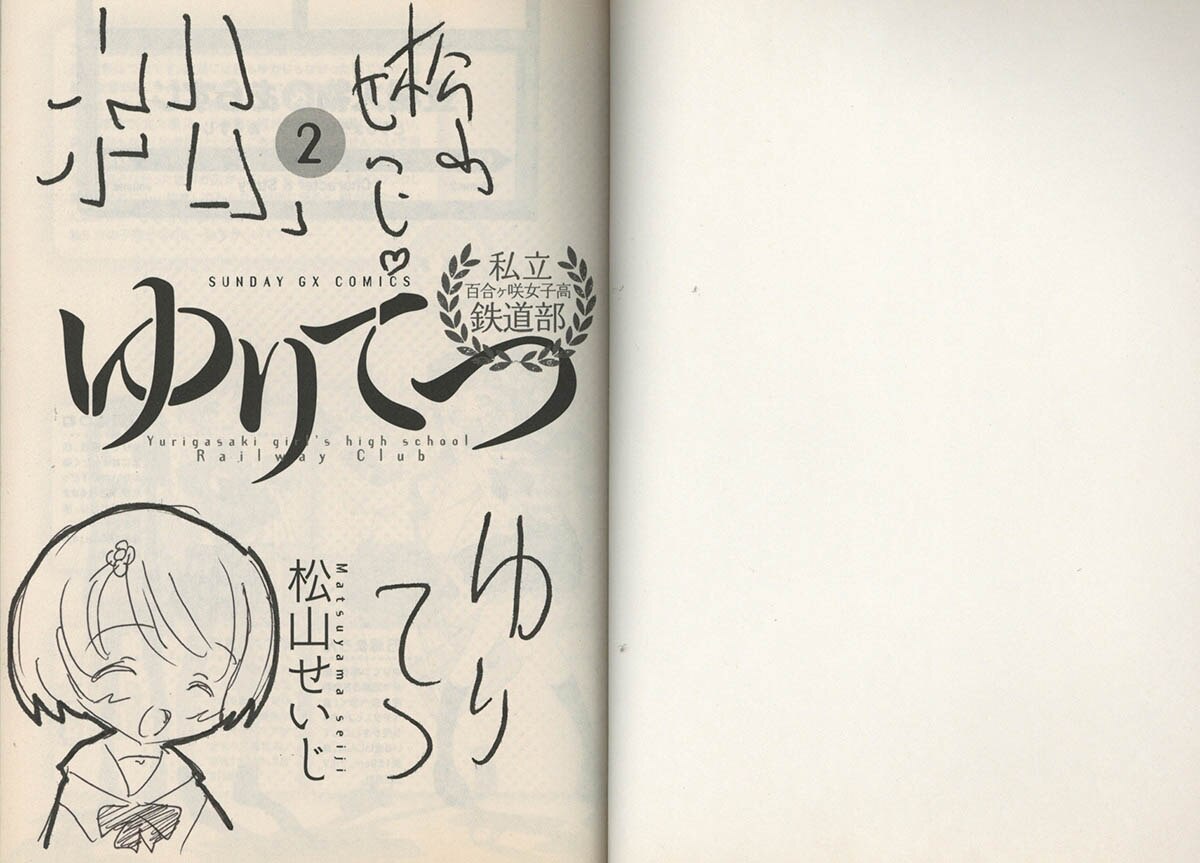 松山
せいじ♡
2
SUNDAY GX COMICS
私立
百合ヶ咲女子高
鉄道部
ゆりてつ
Yurigasaki girl's high school
Railway Club
ゆり
てつ
松山せいじ
Matsuyama seiji